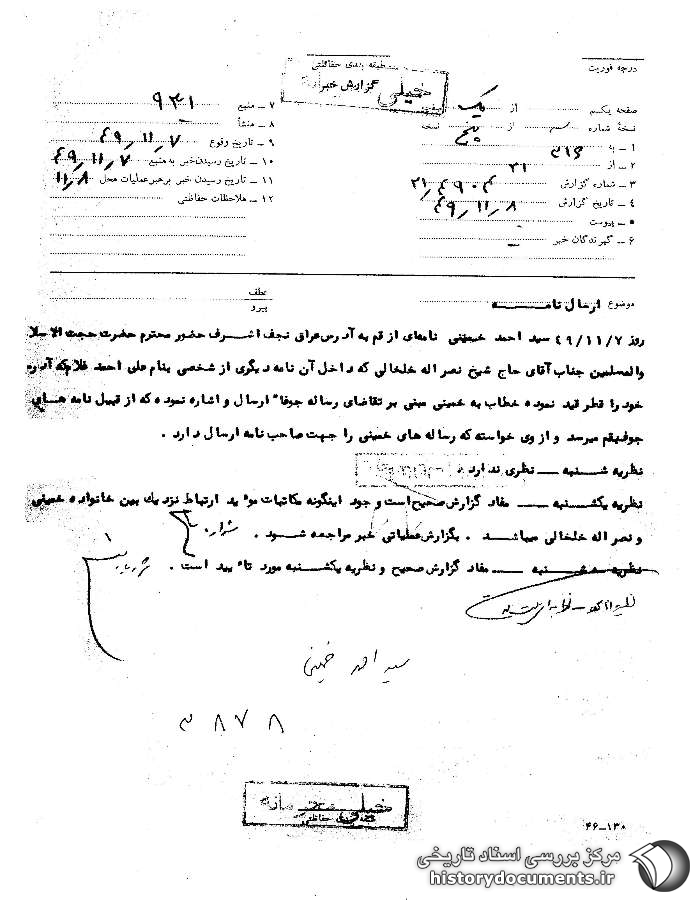 درجه فوریت
طبقه بندی حفاظتی
خیلی
گزارش خبر
صفحه یکم از یک صفحه
نسخهٔ شماره از پنج نسخه
۱ ــ به ۳۱۶
۲ ــ از ۲۱
۳ ــ شماره گزارش
۴ ــ تاریخ گزارش ۴۹/۱۱/۸
۵ ــ پیوست
۶ ــ گیرندگان خبر
۷ ــ منبع ۹۳۱
۸ ــ منشأ
۹ ــ تاریخ وقوع ۴۹/۱۱/۷
۱۰ ــ تاریخ رسیدن خبر به منبع ۴۹/۱۱/۷
۱۱ ــ تاریخ رسیدن خبر برهبر عملیات محل ۱۱/۸
۱۲ ــ ملاحظات حفاظتی
موضوع ارسال نامه
عطف
پیرو
روز ۴۹/۱۱/۷ سید احمد خمینی نامه‌ای از قم به آدرس عراق نجف اشرف حضور محترم حضرت حجت الاسلا
والمسلمین جناب آقای حاج شیخ نصر اله خلخالی که داخل آن نامه دیگری از شخصی بنام علی احمد غلام که آدرس
خود را قطر قید نموده خطاب به خمینی مبنی بر تقاضای رساله جوفاً ارسال و اشاره نموده که از قبیل نامه هایی
جوف بقم میرسد و از وی خواسته که رساله های خمینی را جهت صاحب نامه ارسال دارد .
نظریه شنبه ــ نظری ندارد .
نظریه یکشنبه ــ مفاد گزارش صحیح است و جود اینگونه مکاتبات موٴید ارتباط نزدیك بین خانواده خمینی
و نصر اله خلخالی میباشد . بگزارش عملیاتی خبر مراجعه شود .
نظریه سه شنبه ــ مفاد گزارش صحیح و نظریه یکشنبه مورد تاٴیید است .
سید احمد خمینی
۳۸۷۸
خیلی محرمانه
طبقه بندی حفاظتی
۴۶-۱۳۰
مرکز بررسی اسناد تاریخی
historydocuments.ir